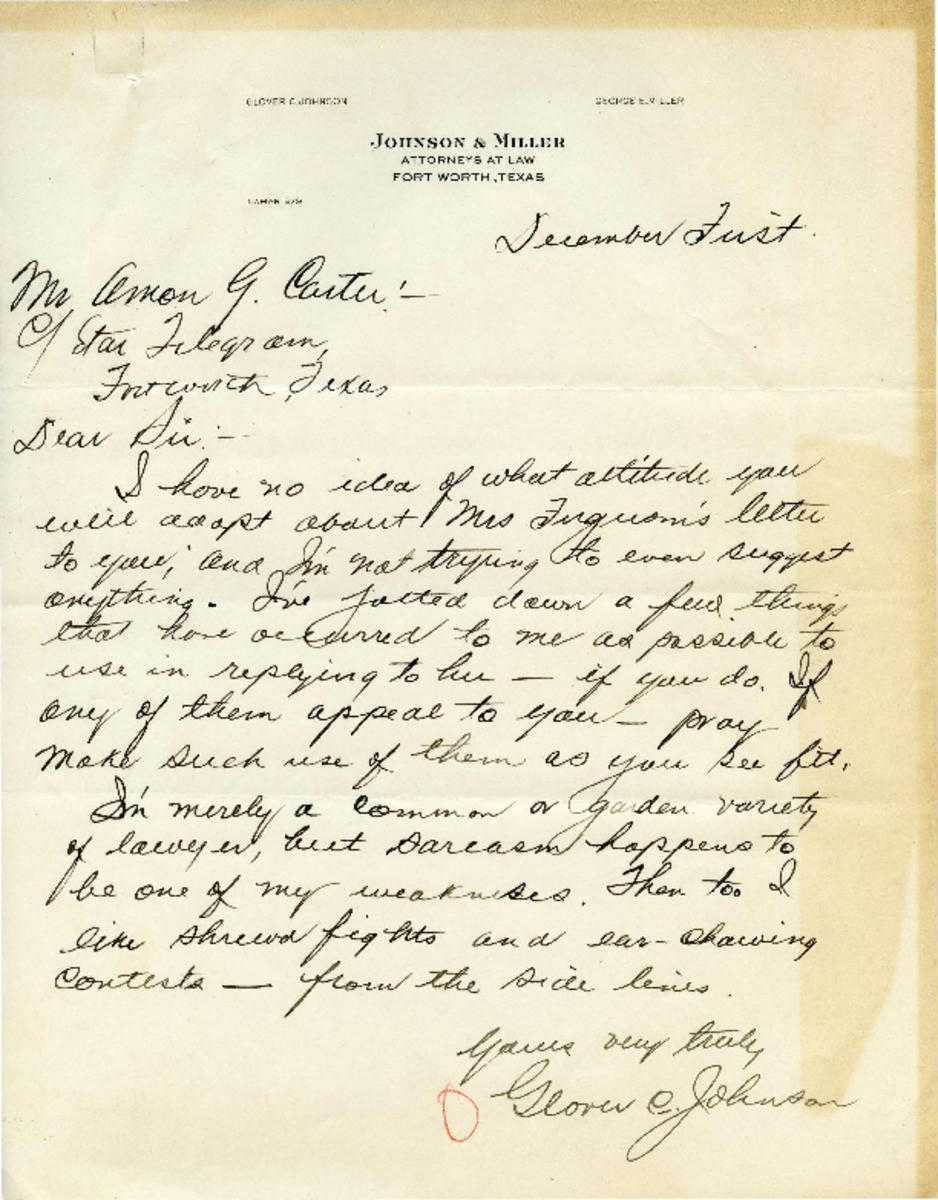 GLOVER C. JOHNSON GEORGE E. MILLER
JOHNSON & MILLER
ATTORNEYS AT LAW
FORT WORTH, TEXAS
LAMAR 629
December First.
Mr Amon G. Carter:—
c/ Star Telegram,
Fort Worth, Texas
Dear Sir:—
I have no idea of what attitude you
will adopt about Mrs Ferguson's letter
to you; and I'm not trying to even suggest
anything. I've jotted down a few things
that have occurred to me as possible to
use in replying to her — if you do. If
any of them appeal to you — pray
make such use of them as you see fit.
I'm merely a common or garden variety
of lawyer, but sarcasm happens to
be one of my weaknesses. Then too I
like shrewd fights and ear-chawing
contests — from the side lines.
Yours very truly
Glover C. Johnson